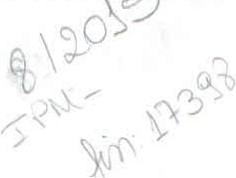 8/2015
IPM-
fin: 17398